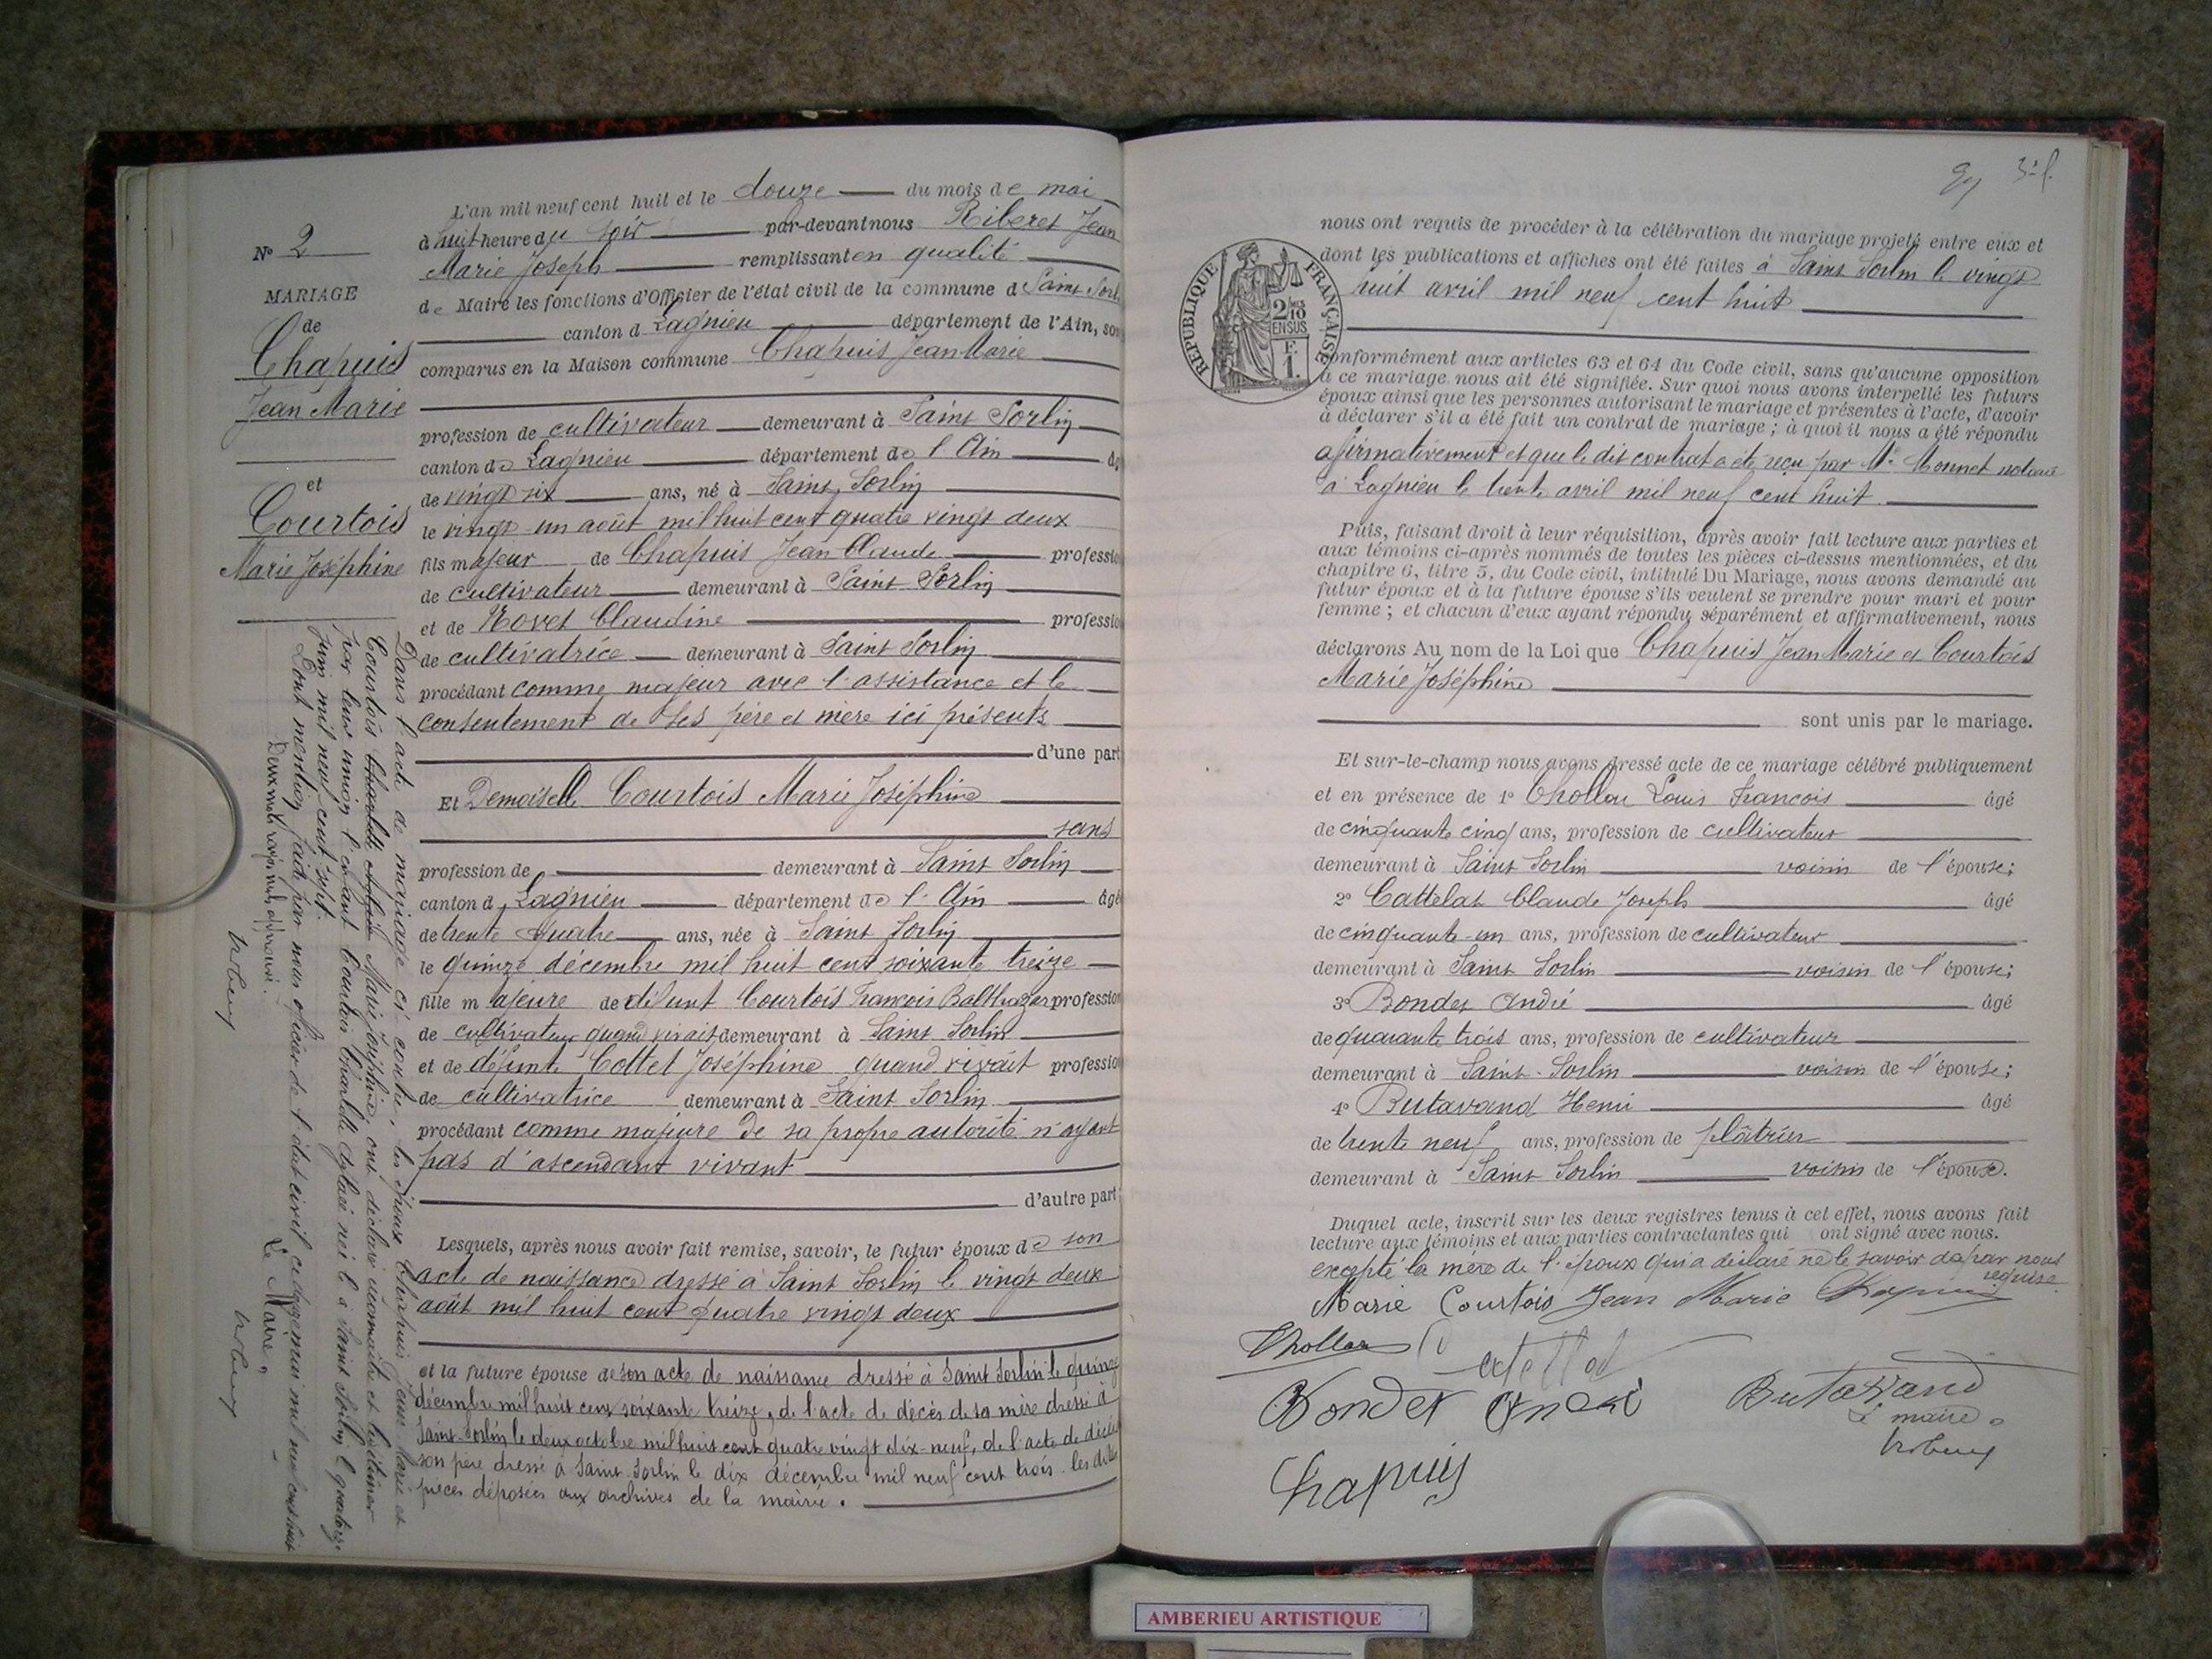 N° 2
MARIAGE
de
Chapuis
Jean Marie
et
Courtois
Marie Joséphine
L'an mil neuf cent huit et le douze du mois de mai
à huit heure du soir par-devant nous Riberet Jean
Marie Joseph remplissant en qualité
de Maire les fonctions d'Officier de l'état civil de la commune d Saint Sorl
canton d Lagnieu département de l'Ain, son
comparus en la Maison commune Chapuis Jean Marie
profession de cultivateur demeurant à Saint Sorlin
canton de Lagnieu département de l'Ain
de vingt six ans, né à Saint Sorlin
le vingt un août mil huit cent quatre vingt deux
fils majeur de Chapuis Jean Claude professio
de cultivateur demeurant à Saint Sorlin
et de Claudine professio
de cultivatrice demeurant à Saint Sorlin
procédant comme majeur avec l'assistance et le
consentement de ses père et mère ici présents
d'une part
Et Demoiselle Courtois Marie Joséphine
sans
profession de demeurant à Saint Sorlin
canton d Lagnieu département de l'Ain âgé
de trente quatre ans, née à Saint Sorlin
le quinze décembre mil huit cent soixante treize
fille majeure de défunt Courtois François Balthazar profession
de cultivateur quand vivait demeurant à Saint Sorlin
et de défunte Cottet Joséphine quand vivait professio
de cultivatrice demeurant à Saint Sorlin
procédant comme majeure de sa propre autorité n'ayant
pas d'ascendant vivant
d'autre part
Lesquels, après nous avoir fait remise, savoir, le futur époux de son
acte de naissance dressé à Saint Sorlin le vingt deux
août mil huit cent quatre vingt deux
et la future épouse de son acte de naissance dressé à Saint Sorlin le quinze
décembre mil huit cent soixante treize, de l'acte de décès de sa mère dressé à
Saint Sorlin le deux octobre mil huit cent quatre vingt dix-neuf, de l'acte de décès
son père dressé à Saint Sorlin le dix décembre mil neuf cent trois. les dites
pièces déposées aux archives de la mairie.
Dans l'acte de mariage ci contre, les époux Chapuis Jean Marie et
Courtois Marie Joséphine ont déclaré reconnaitre et légitimer
par leur union l'enfant Courtois né à Saint Sorlin le quatorze
juin mil neuf cent sept.
Dont mention faite par nous officier de l'état civil
Deux mots rayés nuls approuvés.
Le Maire,
3è f.
RÉPUBLIQUE FRANÇAISE
2/10
EN SUS
F.
1.
nous ont requis de procéder à la célébration du mariage projeté entre eux et
dont les publications et affiches ont été faites à Saint Sorlin le vingt
huit avril mil neuf cent huit
conformément aux articles 63 et 64 du Code civil, sans qu'aucune opposition
à ce mariage nous ait été signifiée. Sur quoi nous avons interpellé les futurs
époux ainsi que les personnes autorisant le mariage et présentes à l'acte, d'avoir
à déclarer s'il a été fait un contrat de mariage ; à quoi il nous a été répondu
afirmativement et que le dit contrat a été reçu par Me Monnet notaire
à Lagnieu le trente avril mil neuf cent huit.
Puis, faisant droit à leur réquisition, après avoir fait lecture aux parties et
aux témoins ci-après nommés de toutes les pièces ci-dessus mentionnées, et du
chapitre 6, titre 5, du Code civil, intitulé Du Mariage, nous avons demandé au
futur époux et à la future épouse s'ils veulent se prendre pour mari et pour
femme ; et chacun d'eux ayant répondu séparément et affirmativement, nous
déclarons Au nom de la Loi que Chapuis Jean Marie et Courtois
Marie Joséphine
sont unis par le mariage.
Et sur-le-champ nous avons dressé acte de ce mariage célébré publiquement
et en présence de 1° Chollou Louis François âgé
de cinquante cinq ans, profession de cultivateur
demeurant à Saint Sorlin voisin de l'épouse;
2° Cattelat Claude Joseph âgé
de cinquante-un ans, profession de cultivateur
demeurant à Saint Sorlin voisin de l'épouse;
3° Bondet André âgé
de quarante trois ans, profession de cultivateur
demeurant à Saint-Sorlin voisin de l'épouse;
4° Butavand Henri âgé
de trente neuf ans, profession de plâtrier
demeurant à Saint Sorlin voisin de l'épouse.
Duquel acte, inscrit sur les deux registres tenus à cet effet, nous avons fait
lecture aux témoins et aux parties contractantes qui ont signé avec nous.
excepté la mère de l'époux qui a déclaré ne le savoir de par nous
requise.
Marie Courtois Jean Marie Chapuis
Bondet André
Butavand
Le maire
Chapuis
AMBERIEU ARTISTIQUE